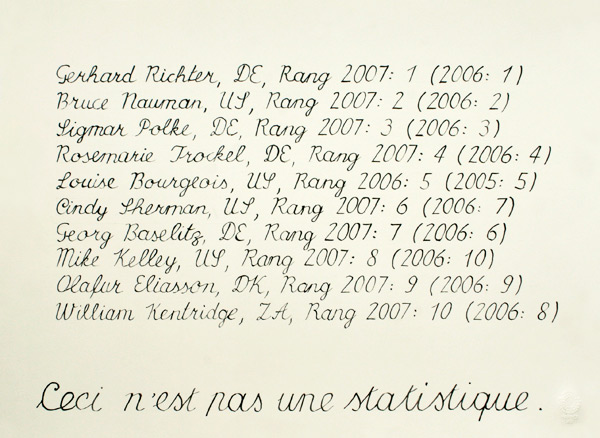 Gerhard Richter, DE, Rang 2007: 1 (2006: 1)
Bruce Nauman, US, Rang 2007: 2 (2006: 2)
Sigmar Polke, DE, Rang 2007: 3 (2006: 3)
Rosemarie Trockel, DE, Rang 2007: 4 (2006: 4)
Louise Bourgeois, US, Rang 2006: 5 (2005: 5)
Cindy Sherman, US, Rang 2007: 6 (2006: 7)
Georg Baselitz, DE, Rang 2007: 7 (2006: 6)
Mike Kelley, US, Rang 2007: 8 (2006: 10)
Olafur Eliasson, DK, Rang 2007: 9 (2006: 9)
William Kentridge, ZA, Rang 2007: 10 (2006: 8)
Ceci n'est pas une statistique.